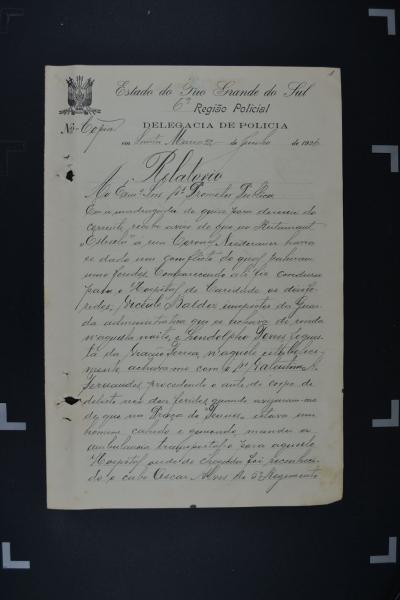 Estado do Rio Grande do Sul
6ª Região Policial
Nº Copia
DELEGACIA DE POLICIA
em Santa Maria 22 de Junho de 1926
Relatorio
Ao Exmº Snr Dr Promotor Publico
Em a madrugada de quinze para deseseis do
corrente, recebi aviso de que no Restaurant
"Estrella" a rua Coronel Niederauer havia
se dado um conflicto do qual sahiram
uns feridos. Comparecendo ali fiz conduzir
para o Hospital de Caridade os dois fe-
ridos, Balder inspector da Guar-
da administrativa que se achava de ronda
n'aquella noite, e Lindolpho foguis-
ta da Viação Ferrea, n'aquelle estabeleci-
mento achava-me com o Dr
Fernandes procedendo o auto de corpo de
delicto nos dois feridos quando avisaram-me
de que na Praça do estava um
homem cahido e gemendo, mandei a
ambulancia transportal-o para aquelle
Hospital onde ao chegar foi reconheci-
do o cabo Oscar Alves do 5º Regimento